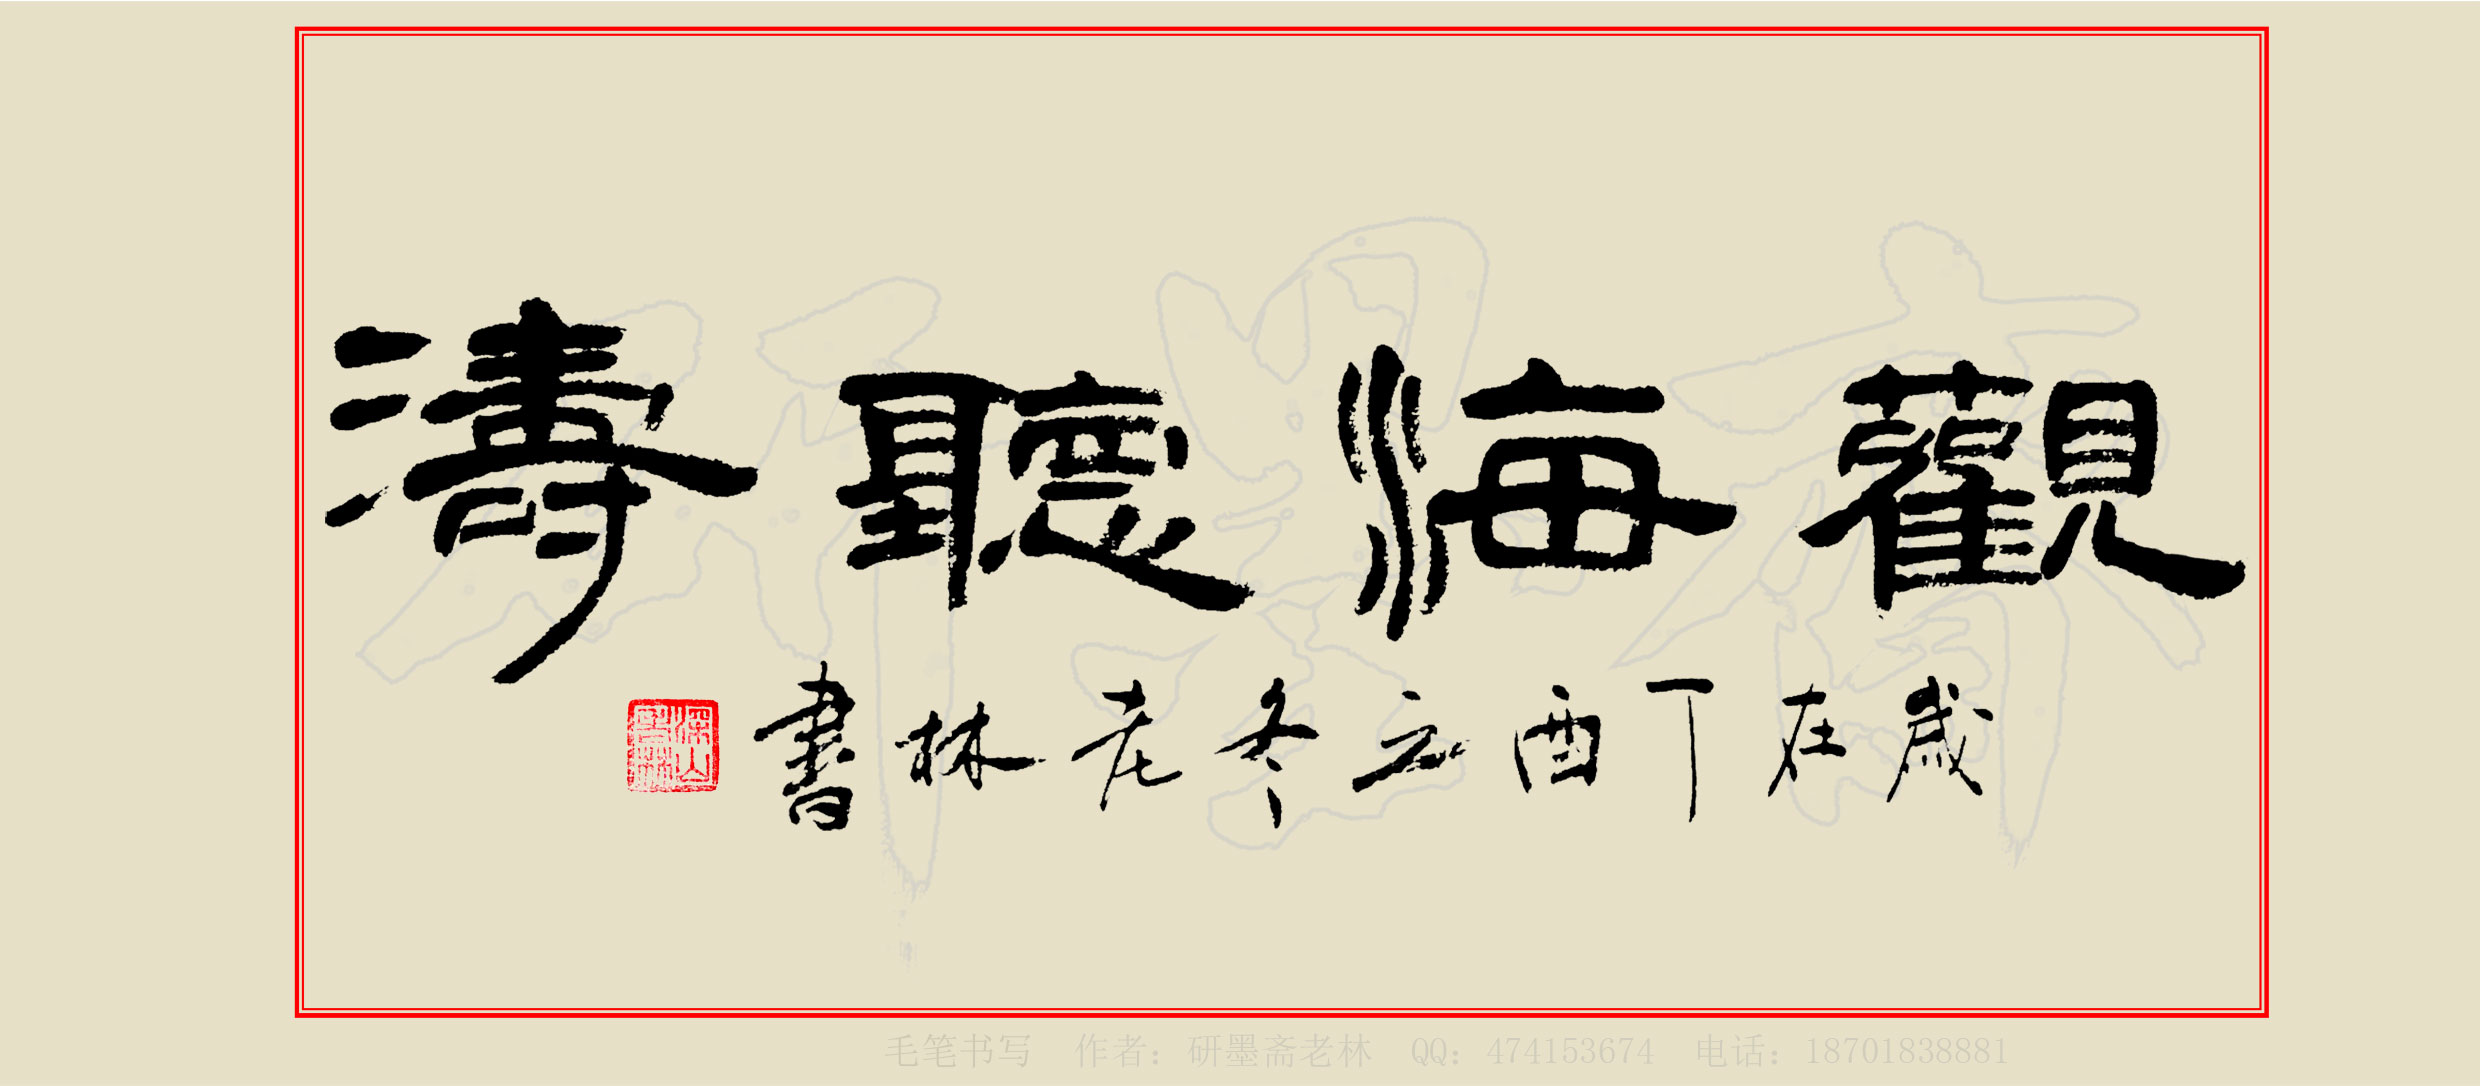 觀海聽濤
歲在丁酉之冬老林書
深山
研墨斋
毛笔书写 作者：研墨斋老林 QQ：474153674 电话：18701838881